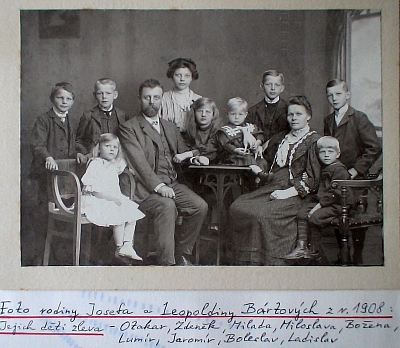 Foto rodiny Josefa a Leopoldiny Bártových z r. 1908:
Jejich děti zleva - Otakar, Zdeněk, Milada, Miloslava, Božena,
Lumír, Jaromír, Boleslav, Ladislav